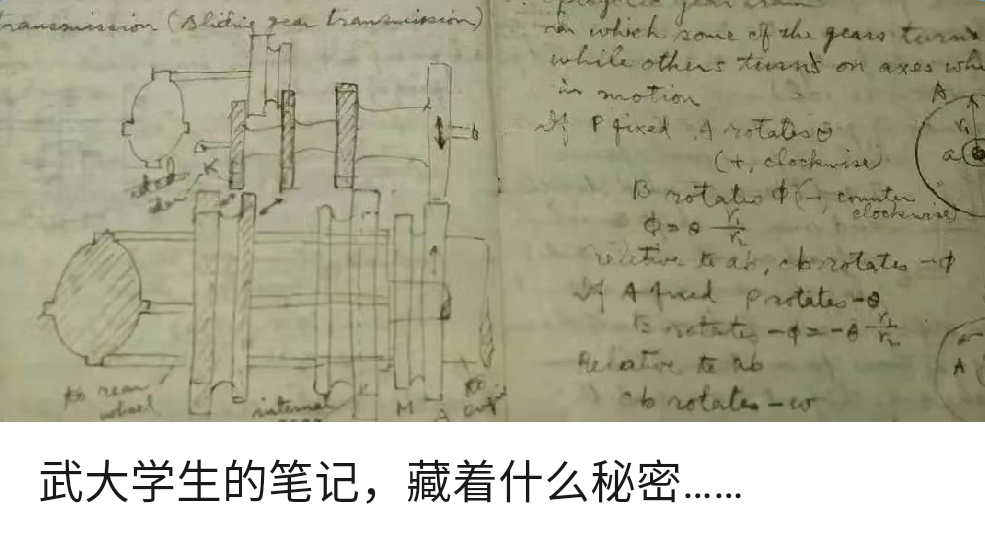 transmission (sliding gear transmission)
K
to rear
wheel
internal
M
A
to
gear train
in which some of the gears turns
while others turns on axes
in motion
If P fixed A rotates θ
(+, clockwise)
B rotates ϕ (-, counter
clockwise)
ϕ = θ r₁/r₂
relative to ab, cb rotates -ϕ
If A fixed P rotates -θ
B rotates -ϕ = -θ r₁/r₂
Relative to ab
cb rotates -ω
A
r₁
a
A
武大学生的笔记，藏着什么秘密……